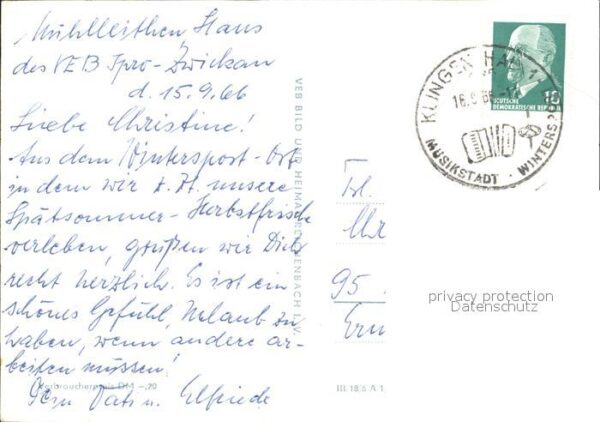 Mühlleithen, Haus
des VEB Ipro-Zwickau
d. 15.9.66
Liebe Christine!
Aus dem Winterspost-Ort
in dem wir z. Zt. unsere
Spätsommer-Herbstfrische
verleben, grüßen wir Dich
recht herzlich. Es ist ein
schönes Gefühl, Urlaub zu
haben, wenn andere ar-
beiten müssen!
Vati u. Elfriede
Verbraucherpreis DM -,20
VEB BILD UND HEIMAT REICHENBACH I. V.
KLINGENTHAL 1
16.9.66
MUSIKSTADT · WINTERSP
10
DEUTSCHE
DEMOKRATISCHE REPUBLIK
Frl.
Chr
95
privacy protection
Datenschutz
III 18 6 A 1